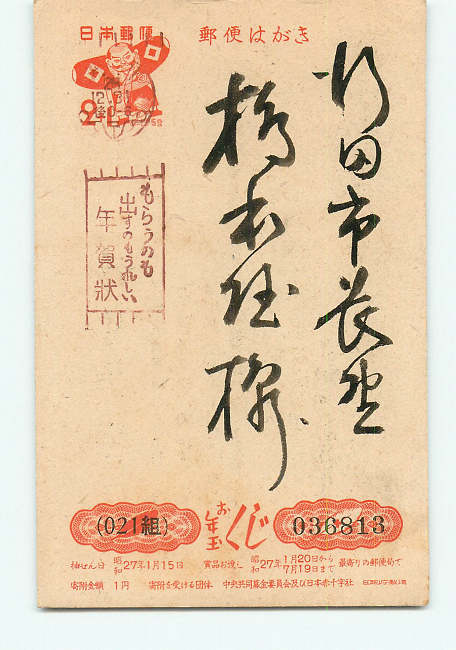 日本郵便
郵便はがき
行田市長野
橋本 様
もらうのも
出すのもうれしい
年賀状
(021組)
お年玉くじ
036813
抽せん日 昭和27年1月15日 賞品お渡し 昭和27年1月20日から7月19日まで 最寄りの郵便局で
寄附金額 1円 寄附を受ける団体 中央共同募金委員会及び日本赤十字社